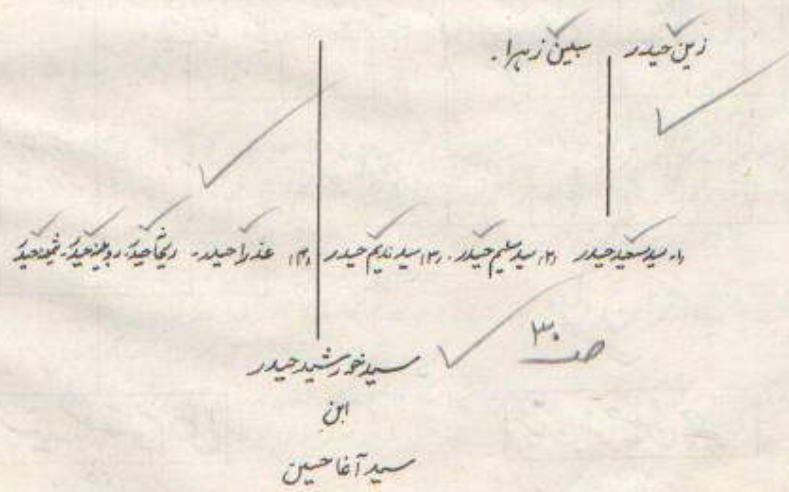 زین حیدر سبین زہرا۔
(۱) سید سعید حیدر (۲) سید سلیم حیدر۔ (۳) سید ندیم حیدر (۴) عذرا حیدر۔ ریحانہ حیدر۔ روبینہ حیدر۔ ثمینہ حیدر
صـ ۳۰
سید خورشید حیدر
ابن
سید آغا حسین